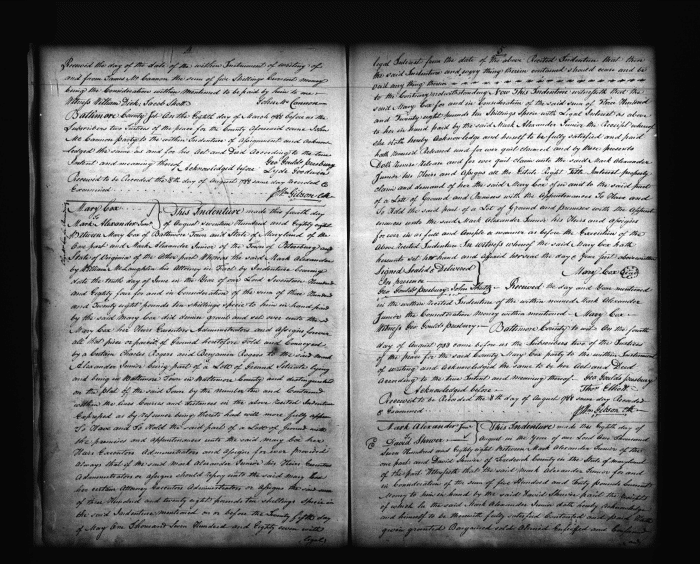 Received the day of the date of the within Instrument of writing of
and from James McCannon the sum of five Shillings Current money
being the Consideration within Mentioned to be paid by him to me
Witness William Dick, Jacob Stull John McCannon
Baltimore County Sct On the Eighth day of March 1788 before us the
Subscribers two Justices of the peace for the County aforesaid came John
McCannon party to the within Indenture of Assignment and acknow=
ledged the same as and for his Act and Deed according to the true
Intent and meaning thereof Acknowledged before Geo Gouldsmith Presbury
Lyde Goodwin
Received to be Recorded the 8th day of August 1788 same day Recorded &
Examined Wm Gibson Clk
Mary Cox
to
Mark Alexander Junr
This Indenture made this fourth day
of August Seventeen hundred and Eighty eight
Between Mary Cox of Baltimore Town and State of Maryland of the
One part and Mark Alexander Junior of the Town of Petersburg and
State of Virginia of the Other part Whereas the said Mark Alexander
by William McLaughlin his Attorney in Fact by Indenture bearing
date the tenth day of June in the Year of our Lord Seventeen Hundred
and Eighty four for and in Consideration of the sum of three Hundred
and Twenty eight pounds ten shillings specie to him in hand paid
by the said Mary Cox did demise grant and set over unto the
Mary Cox her Heirs Executors Administrators and Assigns forever
all that piece or parcel of Ground heretofore Sold and Conveyed
by a Certain Charles Rogers and Benjamin Rogers to the said Mark
Alexander Junior being part of a Lott of Ground Situate lying
and being in Baltimore Town in Baltimore County and distinguished
on the plat of the said Town by the number and Contained
within the lines Courses and distances in the above recited Indenture
Expressed as by reference being thereto had will more fully appear
To Have and To Hold the said part of a Lott of Ground with
the premises and appurtenances unto the said Mary Cox her
Heirs Executors Administrators and Assigns for ever provided
always that if the said Mark Alexander Junior his Heirs Executors
Administrators or Assigns should well pay unto the said Mary Cox
her certain Attorney Executors Administrators or Assigns the sum
of three Hundred and twenty eight pounds ten shillings specie in
the said Indenture mentioned on or before the Twenty fifth day
of May One Thousand Seven Hundred and Eighty seven with
legal
legal Interest from the date of the above Recited Indenture that then
the said Indenture and every thing therein contained should cease and be
void any thing therein
to the Contrary notwithstanding Now This Indenture witnesseth that the
said Mary Cox for and in Consideration of the said sum of Three Hundred
and Twenty eight pounds ten Shillings Specie with Legal Interest as above
to her in hand paid by the said Mark Alexander Junior the Receipt whereof
she doth hereby Acknowledge and herself to be fully satisfied and paid
hath Remised Released and for ever quit claimed and by these presents
Doth Remise Release and for ever quit claim unto the said Mark Alexander
Junior his Heirs and Assigns all the Estate Right Title Interest property
claim and demand of her the said Mary Cox of in and to the said part
of a Lott of Ground and Premises with the Appurtenances To Have and
To Hold the said part of a Lot of Ground and premises with the Appurt
enances unto the said Mark Alexander Junior his Heirs and Assigns
for ever in as full and ample a manner as before the Execution of the
Above recited Indenture In witness whereof the said Mary Cox hath
hereunto set her hand and affixed her seal the day & year first above written
Signed Sealed & Delivered
In presence Mary Cox
Geo Gouldsmith Presbury John Stull Received the day and Year mentioned
in the within recited Indenture of the within named Mark Alexander
Junior the Consideration Money within mentioned Mary Cox
Witness Geo Gouldsmith Presbury Baltimore County to wit On the fourth
day of August 1788 came before us the Subscribers two of the Justices
of the peace for the said County Mary Cox party to the within Instrument
of writing and Acknowledged the same to be her Act and Deed
According to the true Intent and meaning thereof Geo Gouldsmith Presbury
Acknowledged before Thos Elliott
Received to be Recorded the 8th day of August 1788 same day Recorded
& Examined Wm Gibson Clk
Mark Alexander Junr
to
David Shriver
This Indenture made this Eighth day of
August in the Year of our Lord One Thousand
Seven Hundred and Eighty eight Between Mark Alexander Junior of the
one part and David Shriver of Frederick County in the State of Maryland
of the part Witnesseth that the said Mark Alexander Junior for and
in Consideration of the sum of Five Hundred and Thirty pounds Current
Money to him in hand by the said David Shriver paid the Receipt
of which he the said Mark Alexander Junior doth hereby Acknowledge
and himself to be therewith fully satisfied Contented and paid Hath
given granted Bargained sold Aliened Enfeoffed and Confirmed